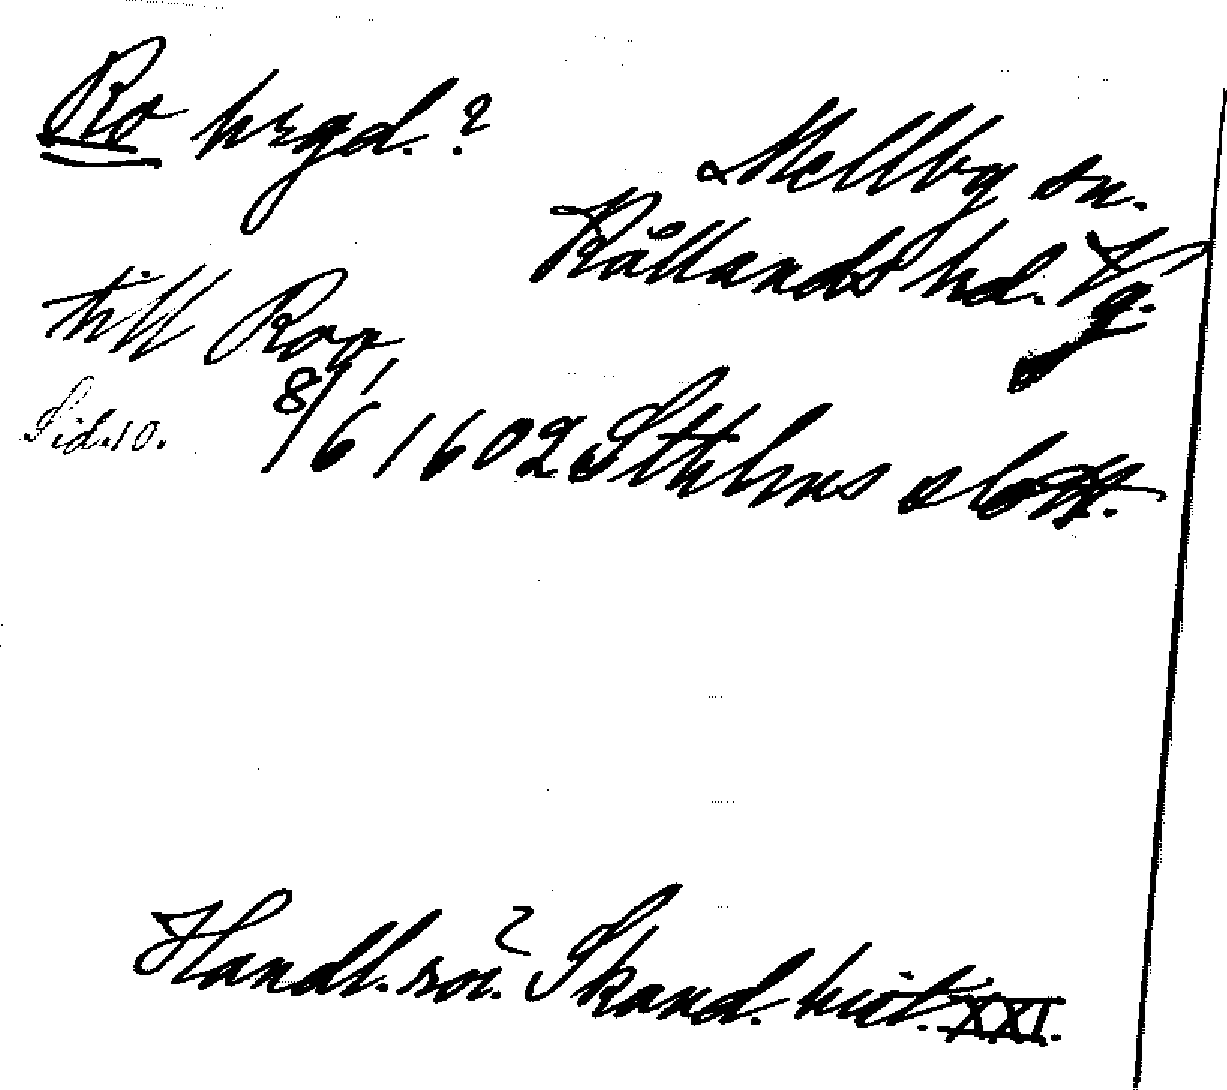 Ro hrgd.?
Mellby sn.
Kållands hd. Vg.
till Roo
Sid. 10.
8/6 1602 Sthlms slott.
Handl. rör. Skand. hist. XXI.